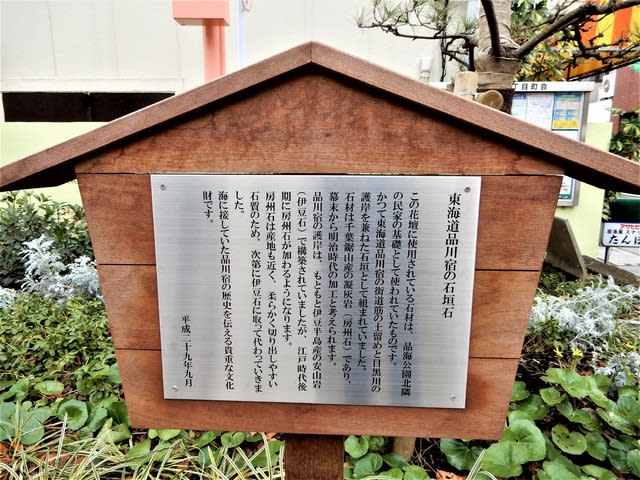 東海道品川宿の石垣石
この花壇に使用されている石材は、品海公園北隣
の民家の基礎として使われていたものです。
かつて東海道品川宿の街道筋の土留めと目黒川の
護岸を兼ねた石垣として組まれていました。
石材は千葉鋸山産の凝灰岩（房州石）であり、
幕末から明治時代の加工と考えられます。
品川宿の護岸は、もともと伊豆半島産の安山岩
（伊豆石）で構築されていましたが、江戸時代後
期に房州石が加わるようになります。
房州石は産地も近く、柔らかく切り出しやすい
石質のため、次第に伊豆石に取って代わっていきま
した。
海に接していた品川宿の歴史を伝える貴重な文化
財です。
平成二十九年九月
丁目町会
アサヒビ
たんぱ